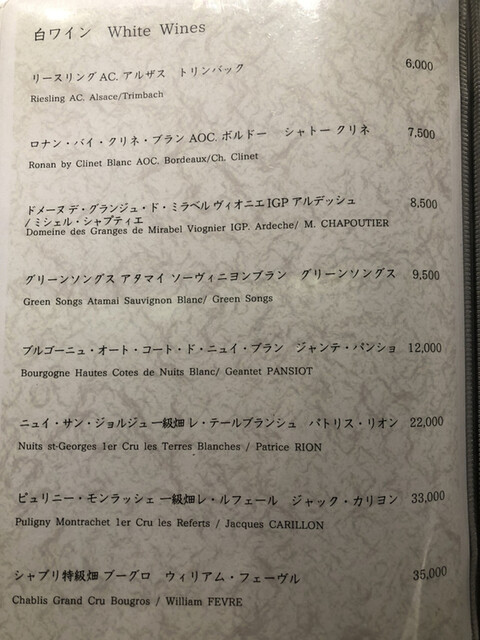 白ワイン White Wines
リースリング AC. アルザス トリンバック 6,000
Riesling AC. Alsace/Trimbach
ロナン・バイ・クリネ・ブラン AOC. ボルドー シャトー クリネ 7,500
Ronan by Clinet Blanc AOC. Bordeaux/Ch. Clinet
ドメーヌ デ・グランジュ・ド・ミラベル ヴィオニエ IGP アルデッシュ 8,500
/ ミシェル・シャプティエ
Domeine des Granges de Mirabel Viognier IGP. Ardeche/ M. CHAPOUTIER
グリーンソングス アタマイ ソーヴィニヨンブラン グリーンソングス 9,500
Green Songs Atamai Sauvignon Blanc/ Green Songs
ブルゴーニュ・オート・コート・ド・ニュイ・ブラン ジャンテ・パンショ 12,000
Bourgogne Hautes Cotes de Nuits Blanc/ Geantet PANSIOT
ニュイ・サン・ジョルジュ 一級畑 レ・テールブランシュ パトリス・リオン 22,000
Nuits st-Georges 1er Cru les Terres Blanches / Patrice RION
ピュリニー・モンラッシェ 一級畑レ・ルフェール ジャック・カリヨン 33,000
Puligny Montrachet 1er Cru les Referts / Jacques CARILLON
シャブリ特級畑 ブーグロ ウィリアム・フェーヴル 35,000
Chablis Grand Cru Bougros / William FEVRE